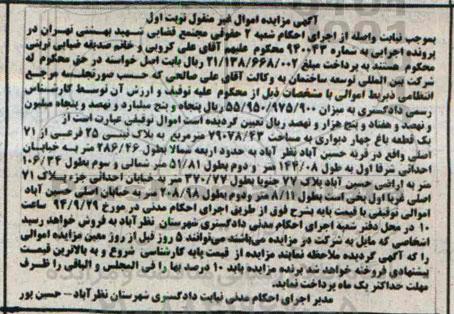 آگهی مزایده اموال غیر منقول نوبت اول
بموجب نیابت واصله از اجرای احکام شعبه ۲ حقوقی مجتمع قضایی شهید بهشتی تهران در
پرونده اجرایی به شماره ۹۴۰۰۴۳ محکوم علیهم آقای علی کروبی و خانم صدیقه ضیایی تربتی
محکوم هستند به پرداخت مبلغ ۳۱/۱۳۸/۶۶۸/۰۰۲ ریال بابت اصل خواسته در حق محکوم له
شرکت بین المللی توسعه ساختمان به وکالت آقای علی صالحی که حسب صورتجلسه مرجع
انتظامی ذیربط اموالی با مشخصات ذیل از محکوم علیه توقیف و ارزش آن توسط کارشناس
رسمی دادگستری به میزان ۵۵/۹۵۰/۹۷۵/۹۰۰ ریال پنجاه و پنج میلیارد و نهصد و پنجاه میلیون
و نهصد و هفتاد و پنج هزار و نهصد ریال تعیین گردیده است اموال توقیفی عبارت است از
یک قطعه باغ چهار دیواری به مساحت ۷۹۰۷۸/۴۳ مترمربع به پلاک ثبتی ۲۵ فرعی از ۷۱
اصلی واقع در قریه حسین آباد نظر آباد به حدود اربعه شمالا بطول ۲۸۶/۴۶ متر به خیابان
احداثی شرقا اول به طول ۱۴۲/۰۸ متر و دوم بطول ۵۱/۸۱ متر شمالی و سوم بطول ۱۰۶/۳۴
متر به اراضی حسین آباد پلاک ۷۷ جنوبا بطول ۳۷۰/۷۷ متر به خیابان احداثی جزء پلاک ۷۱
اصلی غربا اول پخی است بطول ۸/۱۱ متر ودوم بطول ۲۰۸/۹۸ متر به خیابان اصلی حسین آباد
اموالی توقیفی با قیمت پایه بشرح فوق از طریق اجرای احکام مدنی در مورخ ۹۴/۹/۲۹ ساعت
۱۰ در محل دفتر شعبه اجرای احکام مدنی دادگستری شهرستان نظرآباد به فروش خواهد رسید
اشخاصی که مایل به شرکت در مزایده می‌باشند می‌توانند ۵ روز قبل از روز معین مزایده اموالی
را که آگهی گردیده ملاحظه نمایند مزایده از قیمت پایه کارشناسی شروع و به بالاترین قیمت
پیشنهادی فروخته خواهد شد برنده مزایده باید ۱۰ درصد بها را فی المجلس و الباقی را ظرف
مهلت حداکثر یک ماه پرداخت نماید.
مدیر اجرای احکام مدنی نیابت دادگستری شهرستان نظرآباد – حسین پور